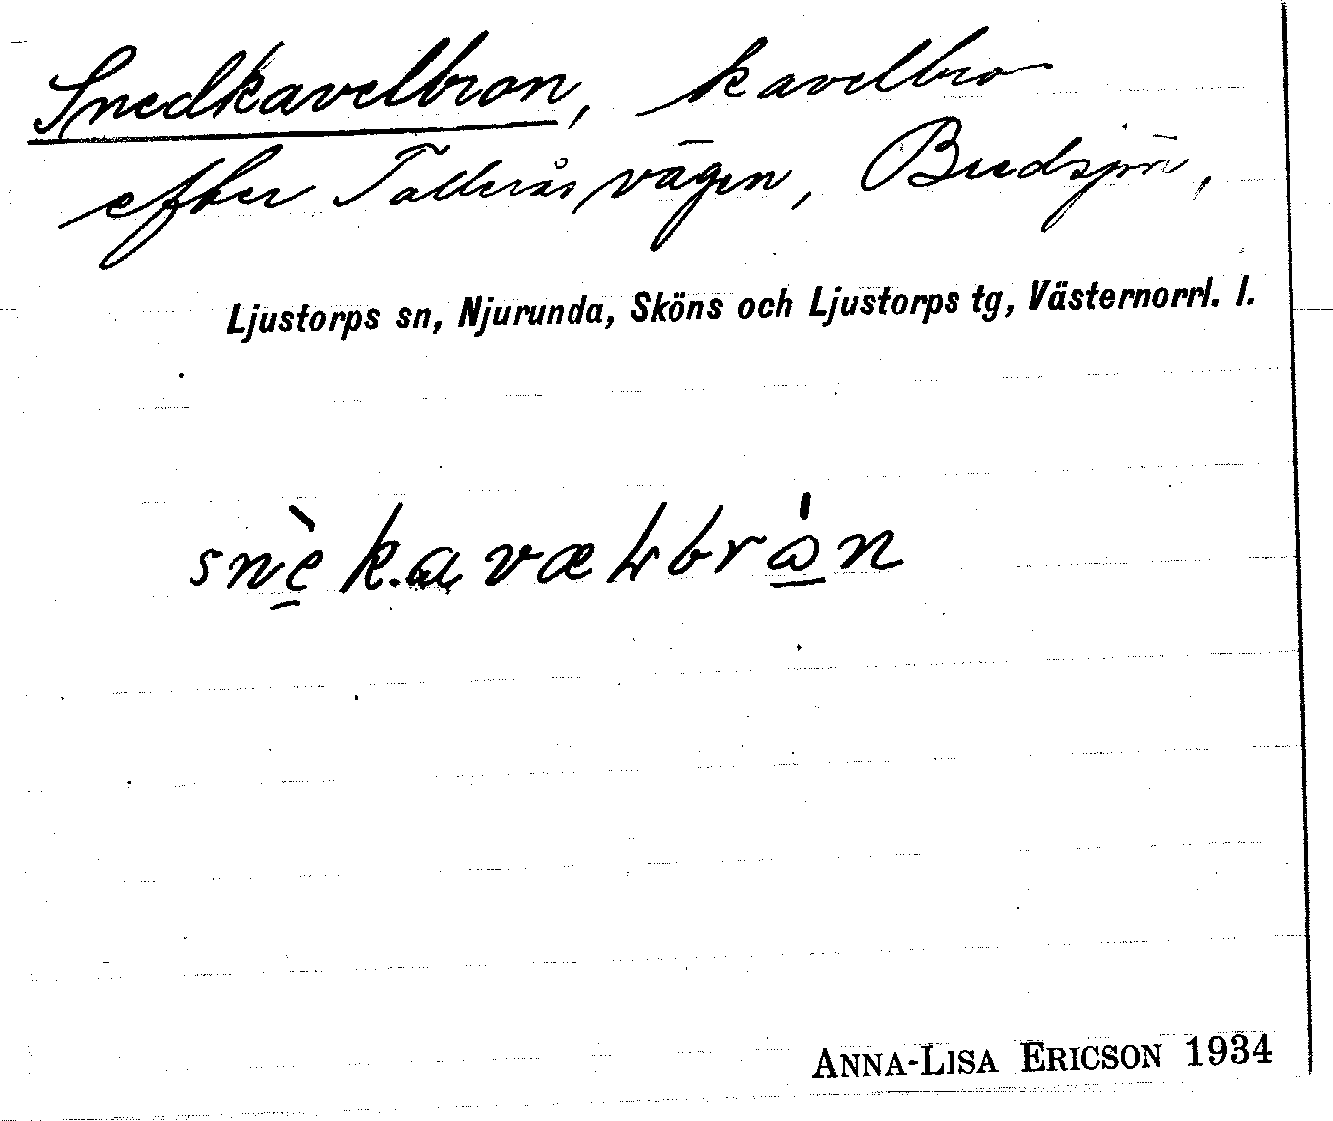 Snedkavelbron, kavelbro
efter Tatteråsvägen, Bredsjön,
Ljustorps sn, Njurunda, Sköns och Ljustorps tg, Västernorrl. l.
ANNA-LISA ERICSON 1934